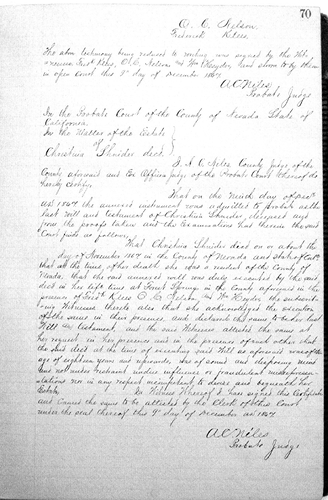 70
O. C. Nelson
Frederick Klees
The above testimony being reduced to writing was signed by the
witnesses Fred Klees, O. C. Nelson & Wm Heyder, and sworn to by them
in open Court this 9 day of December 1867.
A C Niles
Probate Judge
In the Probate Court of the County of Nevada State of
California.
In the Matter of the Estate
of
Christina Shrider decd.
I, A C Niles, County Judge of the
County aforesaid and Ex Officio Judge of the Probate Court thereof do
hereby certify,
That on the Ninth day of Decr
AD 1867 the annexed instrument was admitted to probate as the
last will and testament of Christina Shrider, deceased and
from the proofs taken and the examinations had therein the said
Court finds as follows,
That Christina Shrider died on or about the
day of November 1867 in the County of Nevada and State of Cal
that at the time of her death she was a resident of the County of
Nevada, that the said annexed will was duly executed by the said
decd in her life time at Forest Springs in the County aforesaid in the
presence of Fredk Klees O C Nelson and Wm Heyder the subscrib-
ing Witnesses thereto also that she acknowledged the execution
of the same in their presence and declared the same to be her last
Will and testament, and the said Witnesses attested the same at
her request in her presence and in the presence of each other that
the said decd at the time of executing said Will as aforesaid was of the
age of eighteen years and upwards, was of sound and disposing mind
and not under restraint undue influence or fraudulent misrepresen-
tations nor in any respect incompetent to devise and bequeath her
Estate.
In Witness Whereof I have signed this Certificate
and caused the same to be attested by the Clerk of this Court
under the seal thereof this 9 day of December AD 1867
A C Niles
Probate Judge